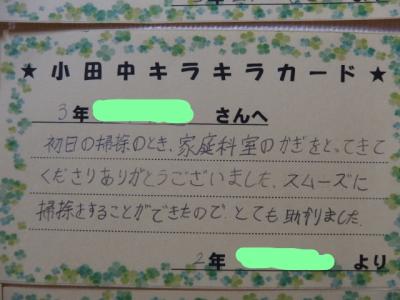 ★ 小田中キラキラカード ★
3年 さんへ
初日の掃除のとき、家庭科室のかぎをとってきて
くださりありがとうございました。スムーズに
掃除をすることができたので、とても助かりました。
2年 より